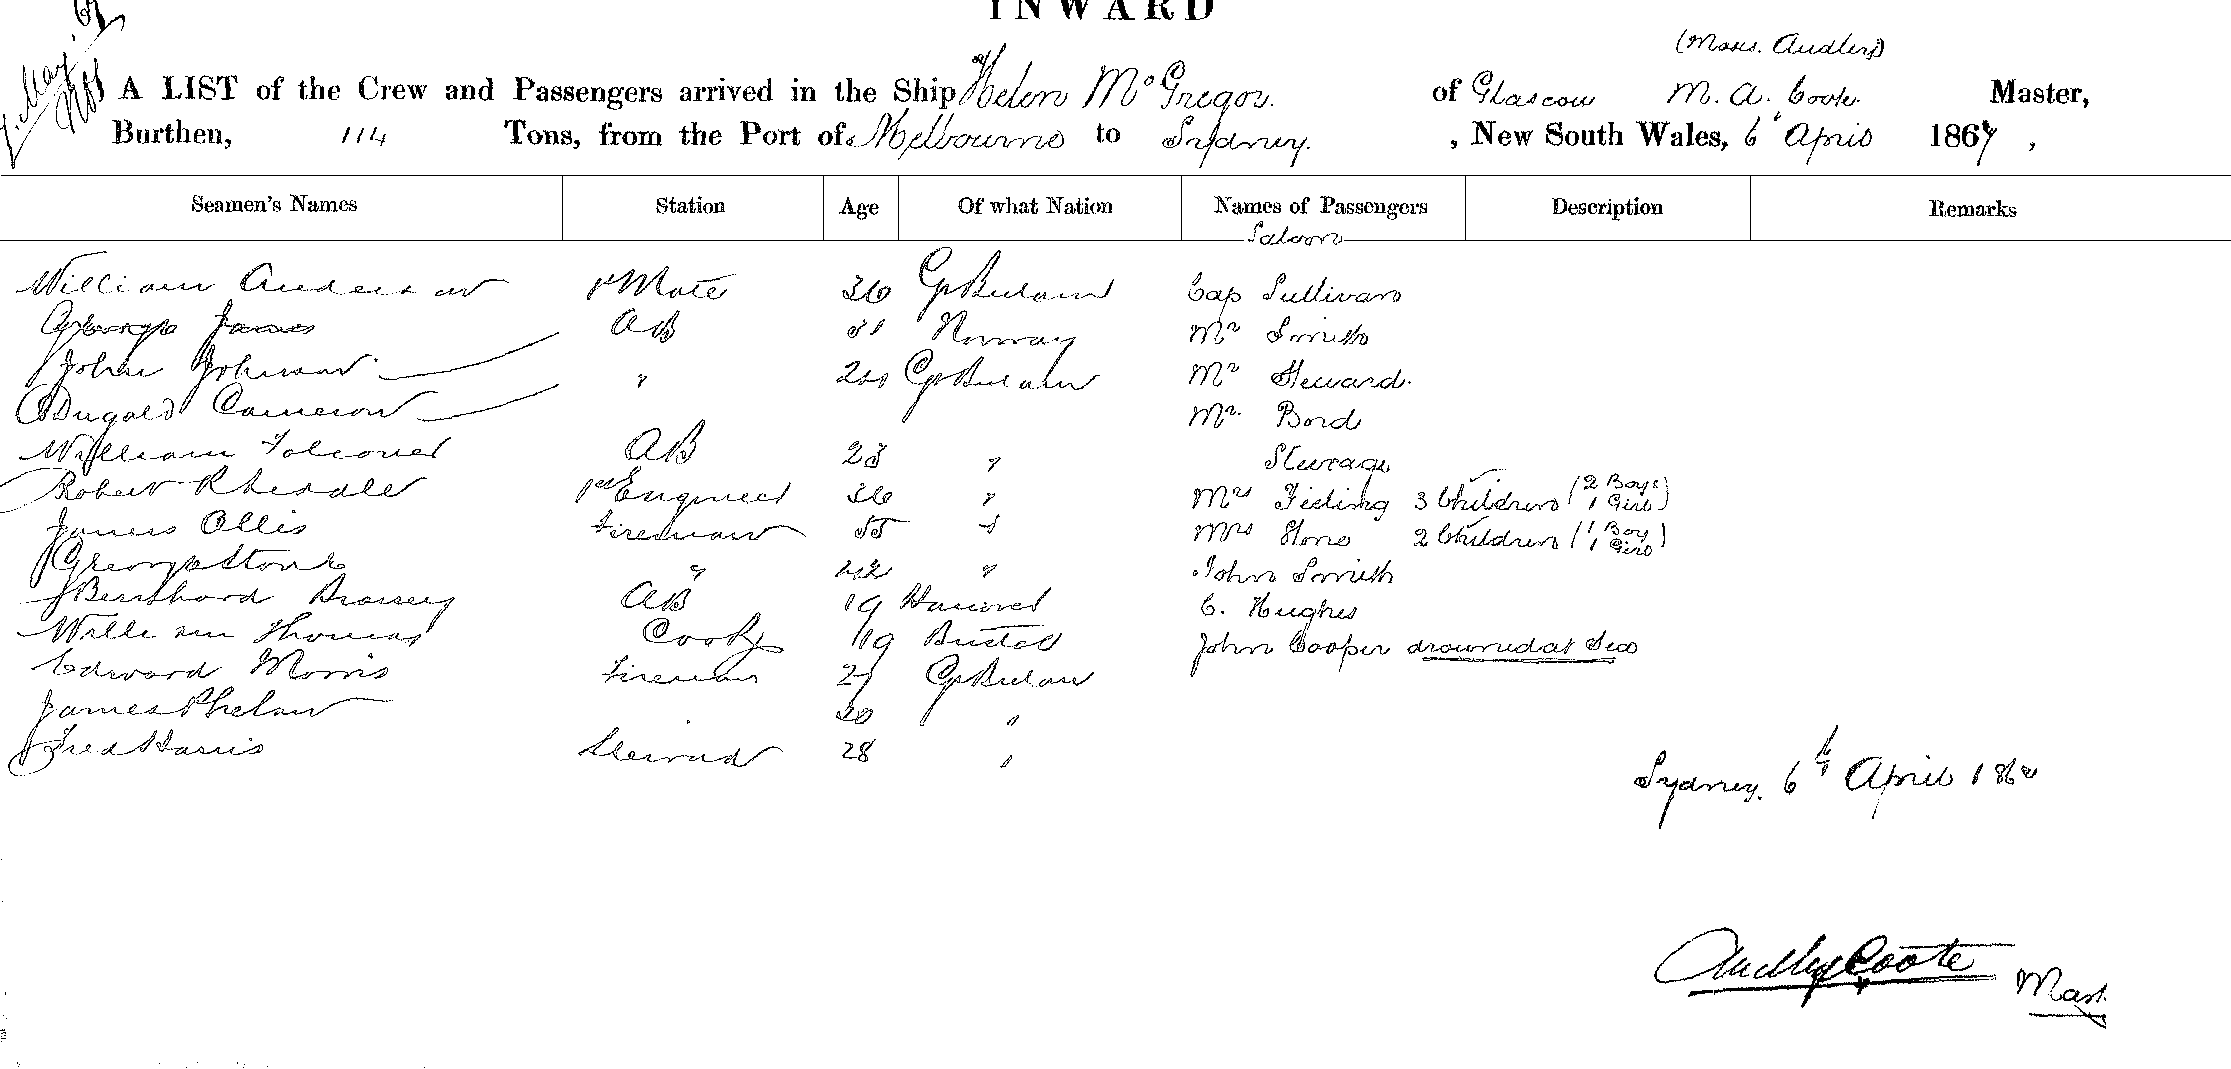 INWARD
(Mars. Audley)
A LIST of the Crew and Passengers arrived in the Ship Helen McGregor. of Glascow M. A. Coote. Master,
Burthen, 114 Tons, from the Port of Melbourne to Sydney. , New South Wales, 6 April 1867 ,
Seamen's Names Station Age Of what Nation Names of Passengers Description Remarks
Saloon
William Anderson 1st Mate 36 Gt Britain Cap Sullivan
George James AB 31 Norway Mr Smith
John Johnson " Gt Britain Mr Steward.
Dugald Cameron Mr. Bord
William Falconer AB 23 " Steerage
Robert 1st Engineer 36 " Mrs Fieling 3 Children (2 Boys 1 Girl)
James Ollis Fireman 35 " Mrs Stone 2 Children (1 Boy 1 Girl)
George Stone " 42 " John Smith
AB 19 Hanover C. Hughes
William Thomas Cook 19 Bristol John Cooper drowned at Sea
Edward Morris Fireman Gt Britain
James Phelan 30 "
Fred Harris Steward 28 "
Sydney. 6th April
Audley Coote
Mast.